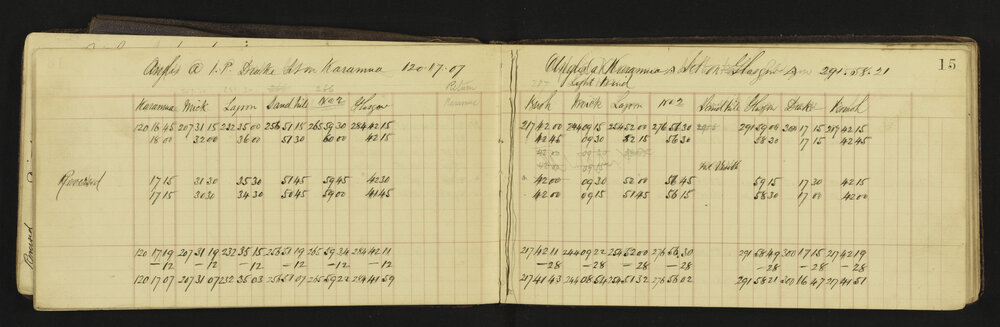 Angles @ I.P. Drake Set on Karamua 120.17.07
Return
Karamua Wrick Lagoon Sand Hile No 2 Glasgow
120 16 45 207 31 15 232 35 00 256 51 15 265 59 30 284 42 15
18 00 32 00 36 00 51 30 60 00 42 15
Reversed 17 15 31 30 35 30 51 45 59 45 42 30
17 15 30 30 34 30 50 45 59 00 41 45
120 17 19 207 31 19 232 35 15 256 51 19 265 59 34 284 42 11
-12 -12 -12 -12 -12 -12
120 17 07 207 31 07 232 35 03 256 51 07 265 59 22 284 41 59
15
Angles at Set on Glasgow 291.58.21
Light Wind
Wrick Lagoon No 2 Sand Hile Glasgow Drake
217 42 00 244 09 15 254 52 00 276 56 30 291 59 00 300 17 15 217 42 15
42 45 09 30 52 15 56 30 58 30 17 15 42 45
Not Visible
42 00 09 30 52 00 56 45 59 15 17 30 42 15
42 00 09 15 51 45 56 15 58 30 17 00 42 00
217 42 11 244 09 22 254 52 00 276 56 30 291 58 49 300 17 15 217 42 19
-28 -28 -28 -28 -28 -28 -28
217 41 43 244 08 54 254 51 32 276 56 02 291 58 21 300 16 47 217 41 51